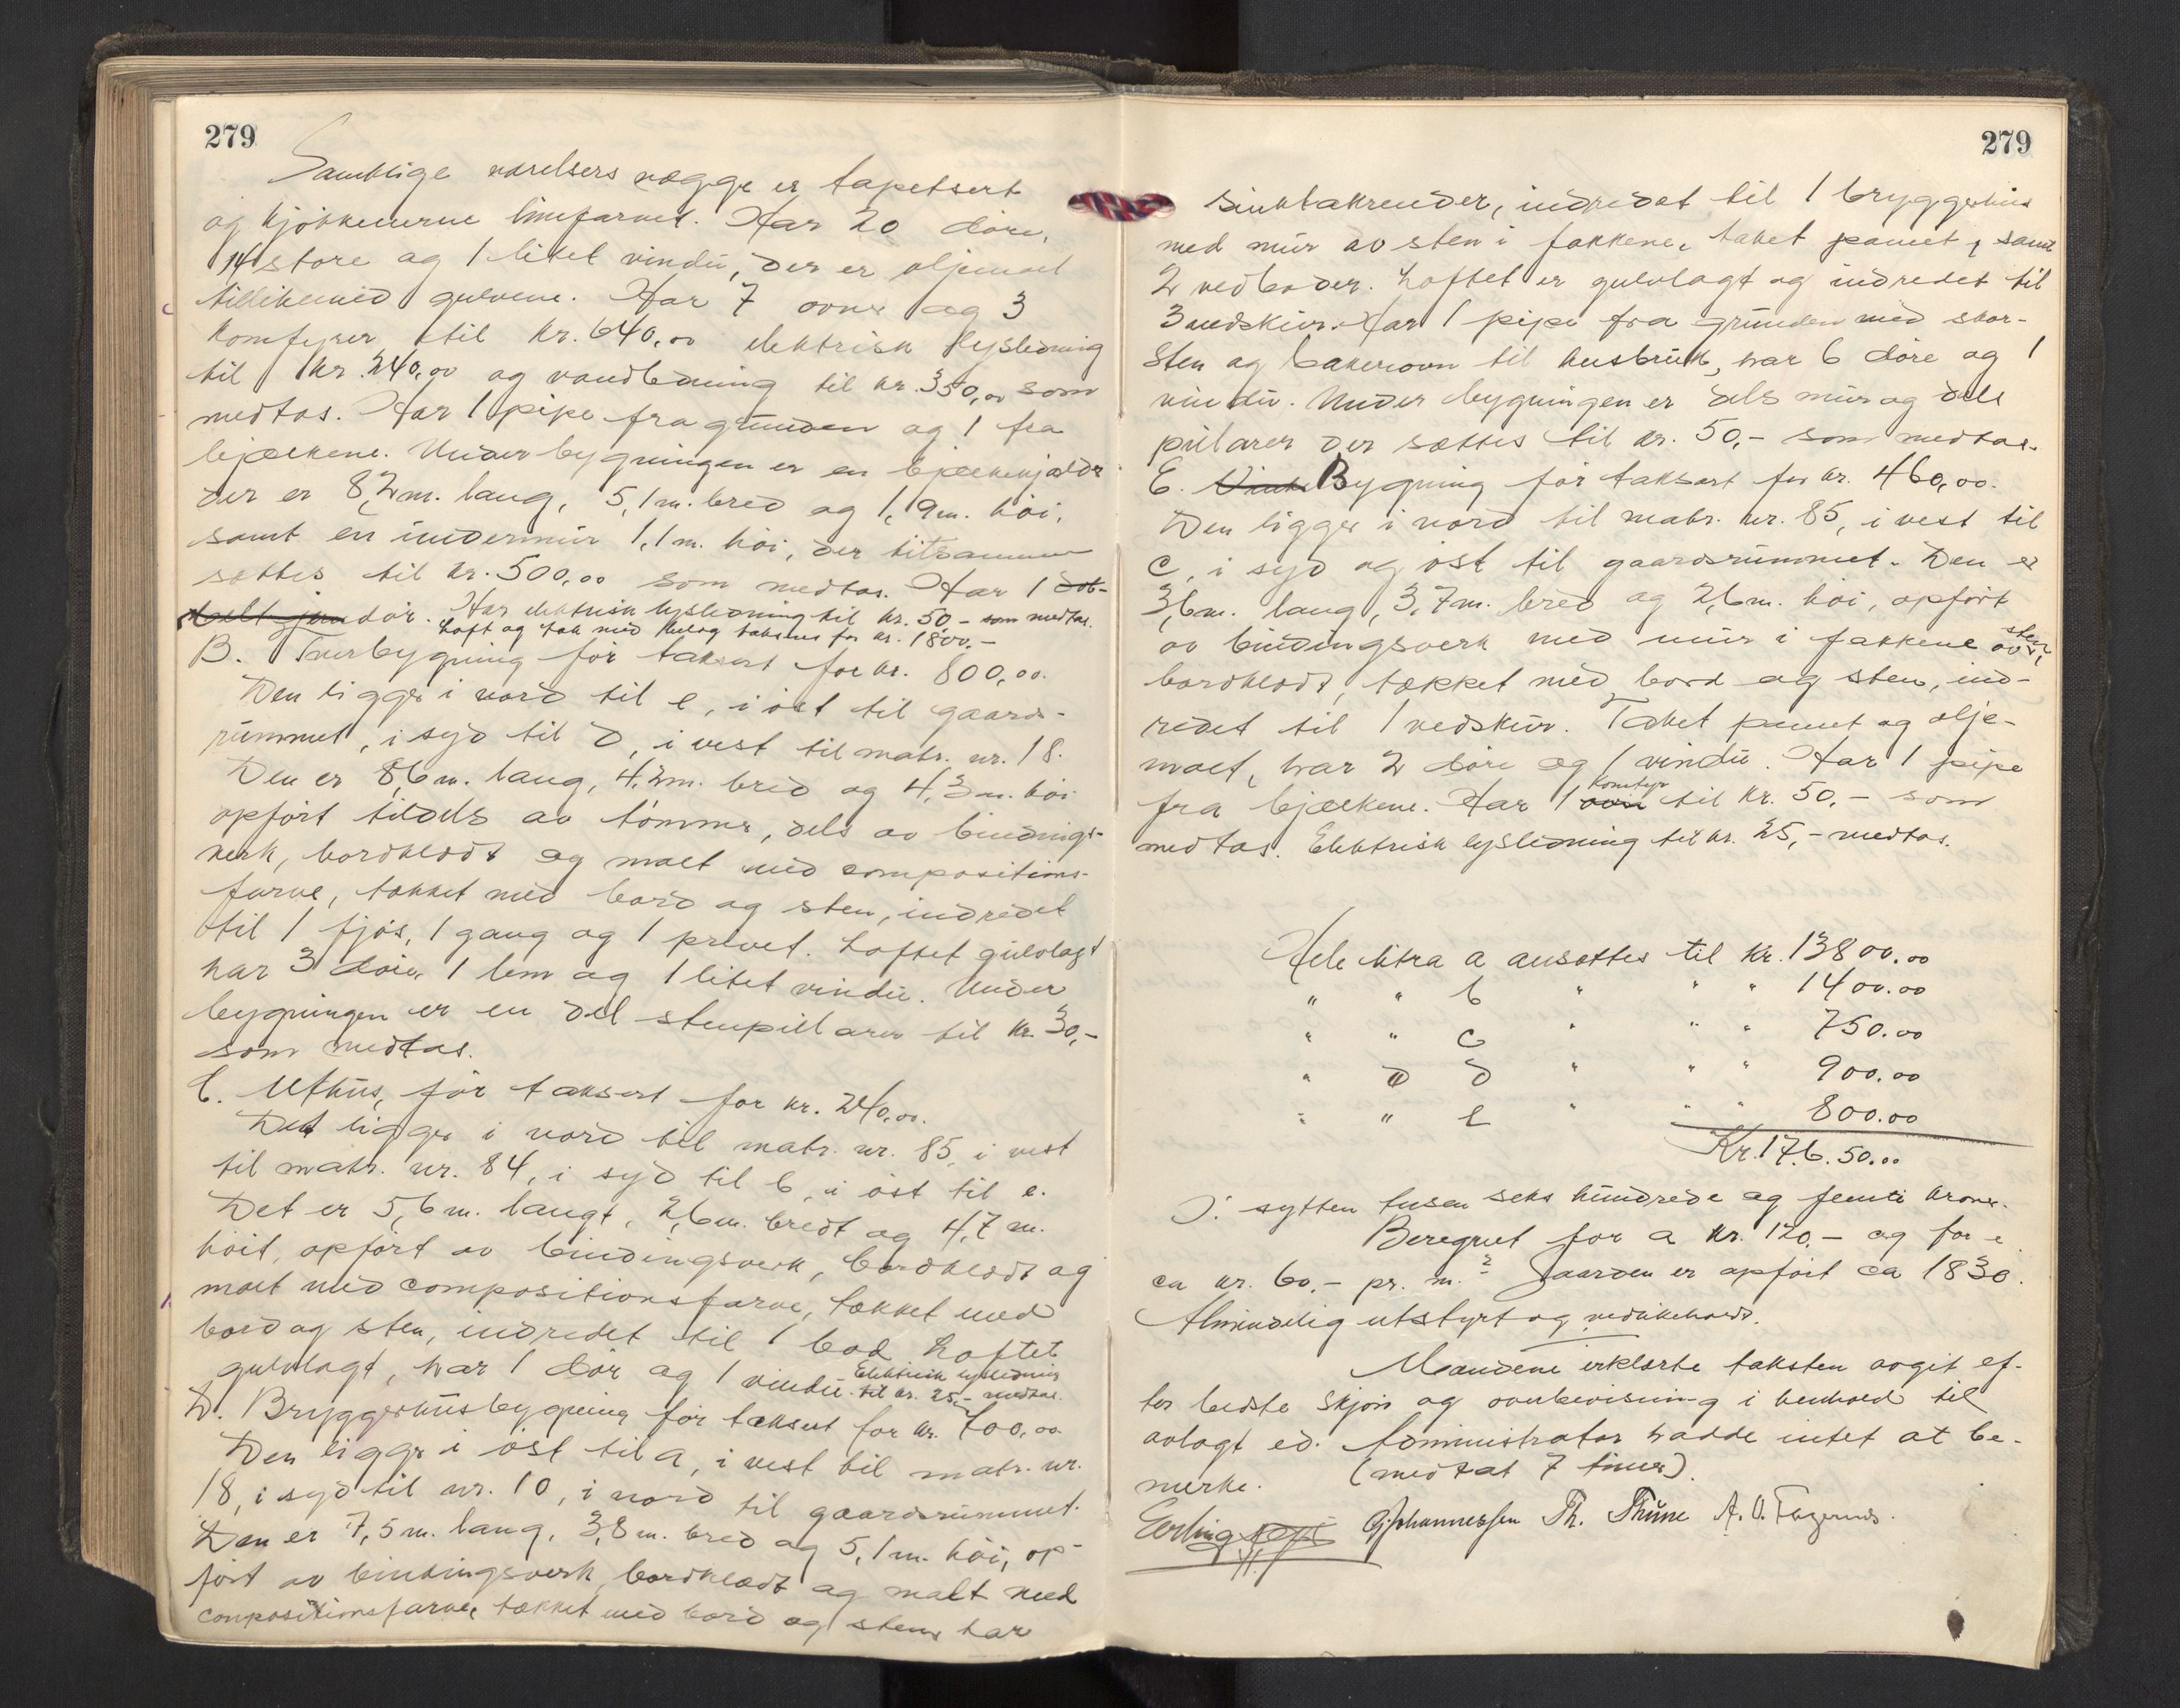 279
Samtlige værelsers vægge er tapetsert
og kjøkkenerne limfarvet. Har 20 døre,
14 store og 1 litet vindu, der er oljemalt
tillikemed gulvene. Har 7 ovner og 3
komfyrer til kr. 640,00 elektrisk lysledning
til kr. 240,00 og vandledning til kr. 350,00 som
medtas. Har 1 pipe fra grunden og 1 fra
bjælkene. Under bygningen er en bjælkekjælder
der er 8,2 m. lang, 5,1 m. bred og 1,9 m. høi,
samt en indermur 1,1 m. høi, der tilsammen
sættes til kr. 500,00 som medtas. Har 1 dob-
belt jerndør. Har elektrisk lysledning til kr. 50,- som medtas.
Loft og tak med takseres for kr. 1800.-
B. bygning før taksert for kr. 800,00.
Den ligger i nord til c, i øst til gaards-
rummet, i syd til D, i vest til matr. nr. 18.
Den er 8,6 m. lang, 4,2 m. bred og 4,3 m. høi
opført tildels av tømmer, dels av bindings-
verk, bordklædt og malt med compositions-
farve, tækket med bord og sten, indredet
til 1 fjøs, 1 gang og 1 privet. Loftet gulvlagt
har 3 døre, 1 lem og 1 litet vindu. Under
bygningen er en del stenpillarer til kr. 30,-
som medtas.
C. Uthus, før taksert for kr. 240,00.
Det ligger i nord til matr. nr. 85, i vest
til matr. nr. 84, i syd til b, i øst til e.
Det er 5,6 m. langt, 2,6 m. bredt og 4,7 m.
høit, opført av bindingsverk, bordklædt og
malt med compositionsfarve, tækket med
bord og sten, indredet til 1 bod. Loftet
gulvlagt, har 1 dør og 1 vindu. Elektrisk lysledning
til kr. 25,- medtas.
D. Bryggerhusbygning før taksert for kr. 700,00
Den ligger i øst til a, i vest til matr. nr.
18, i syd til nr. 10, i nord til gaardsrummet.
Den er 7,5 m. lang, 3,8 m. bred og 5,1 m. høi, op-
ført av bindingsverk, bordklædt og malt med
compositionsfarve, tækket med bord og sten, har
279
sinktakrender, indredet til 1 bryggerhus
med mur av sten i fakkene, taket panelt, samt
2 vedboder. Loftet er gulvlagt og indredet til
3 vedskur. Har 1 pipe fra grunden med skor-
sten og bakerovn til husbruk, har 6 døre og 1
vindu. Under bygningen er dels mur og dels
pilarer der sættes til kr. 50,- som medtas.
E. Bygning før taksert for kr. 460,00.
Den ligger i nord til matr. nr. 85, i vest til
C, i syd og øst til gaardsrummet. Den er
3,6 m. lang, 3,7 m. bred og 2,6 m. høi, opført
av bindingsverk med mur i fakkene av sten,
bordklædt, tækket med bord og sten, ind-
redet til 1 vedskur. Taket panelt og olje-
malt, har 2 døre og 1 vindu. Har 1 pipe
fra bjælkene. Har 1 ovn komfyr til kr. 50,- som
medtas. Elektrisk lysledning til kr. 25,- medtas.
Hele litra a ansættes til kr. 13800.00
" " b " " " 1400.00
" " c " " " 750.00
" " d " " " 900.00
" " e " " " 800.00
Kr. 17.6.50.00
J: sytten tusen seks hundrede og femti kroner.
Beregnet for a kr. 120,- og for e
ca kr. 60,- pr. m.² Gaarden er opført ca 1830.
Almindelig utstyrt og vedlikeholdt.
Mændene erklærte taksten avgit ef-
ter bedste skjøn og overbevisning i henhold til
avlagt ed. Administrator hadde intet at be-
merke. (medtat 7 timer).
Erling Johannessen Th. Thune A. O. Fagernes.